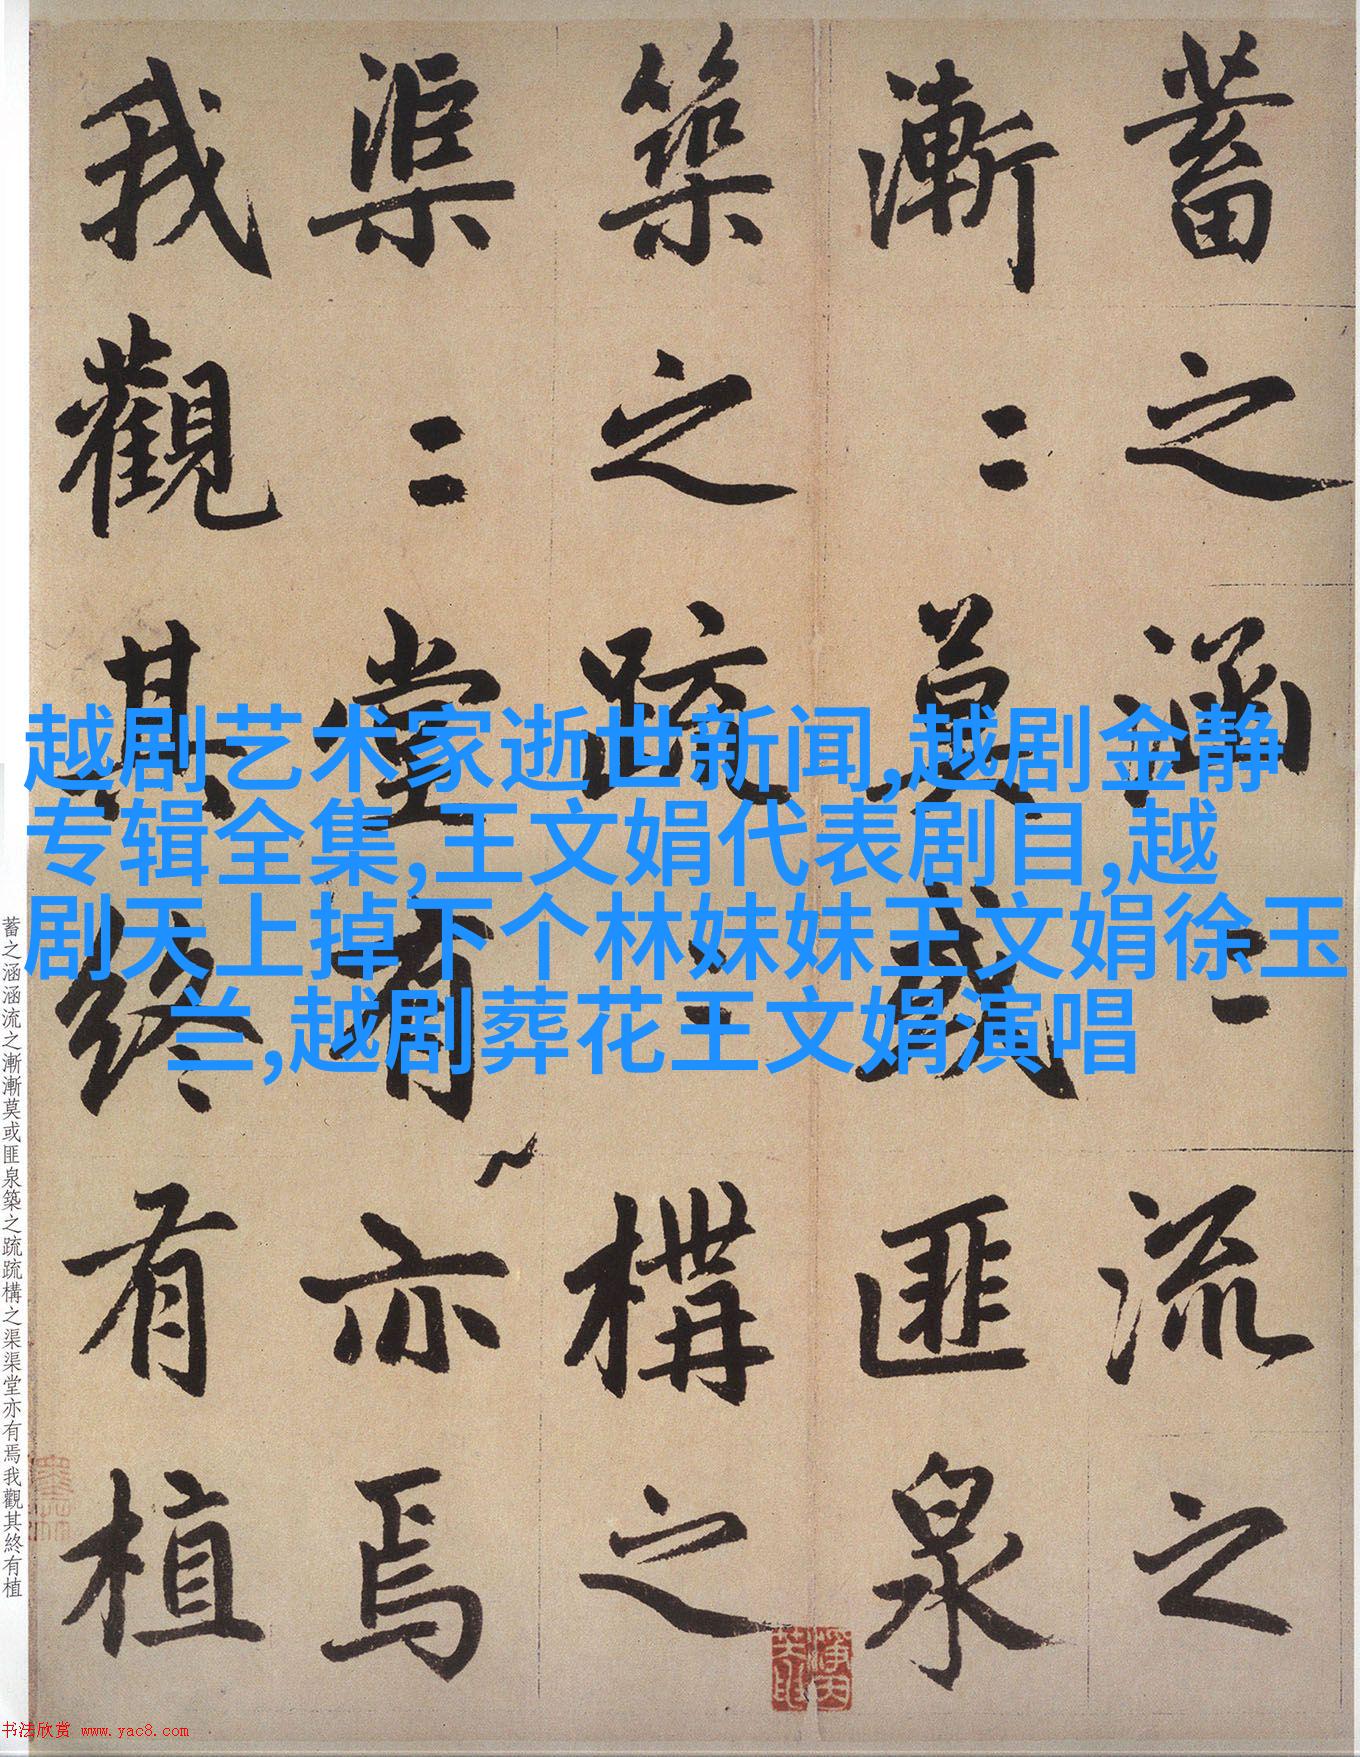 蓄之涵〻流之
漸〻莫或匪泉
築之疏〻構之
渠〻堂有亦焉
我觀其終有植
越剧艺术家逝世新闻,越剧金静
专辑全集,王文娟代表剧目,越
剧天上掉下个林妹妹王文娟徐玉
兰,越剧葬花王文娟演唱
蓄之涵涵流之漸漸莫或匪泉築之疏疏構之渠渠堂亦有焉我觀其終有植
书法欣赏 www.yac8.com